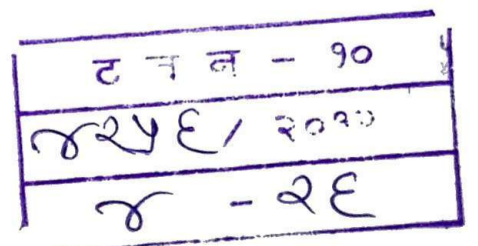 ट न न - १०
४२५६/ २०२०
४ - २६